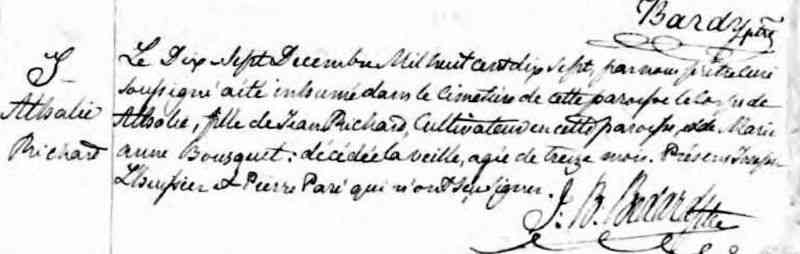 Bardy ptre
S
Athalie
Richard
Le Dix-sept Decembre Mil huit cent dix sept, par nous prêtre curé
soussigné a été inhumé dans le Cimetière de cette paroisse le Corps de
Athalie, fille de Jean Richard, Cultivateur en cette paroisse, et de Marie
anne Bousquet: décédée la veille, agée de treize mois. Présens Joseph
L'heussier et Pierre Paré qui n'ont su signer.
J: B. Bédard ptre